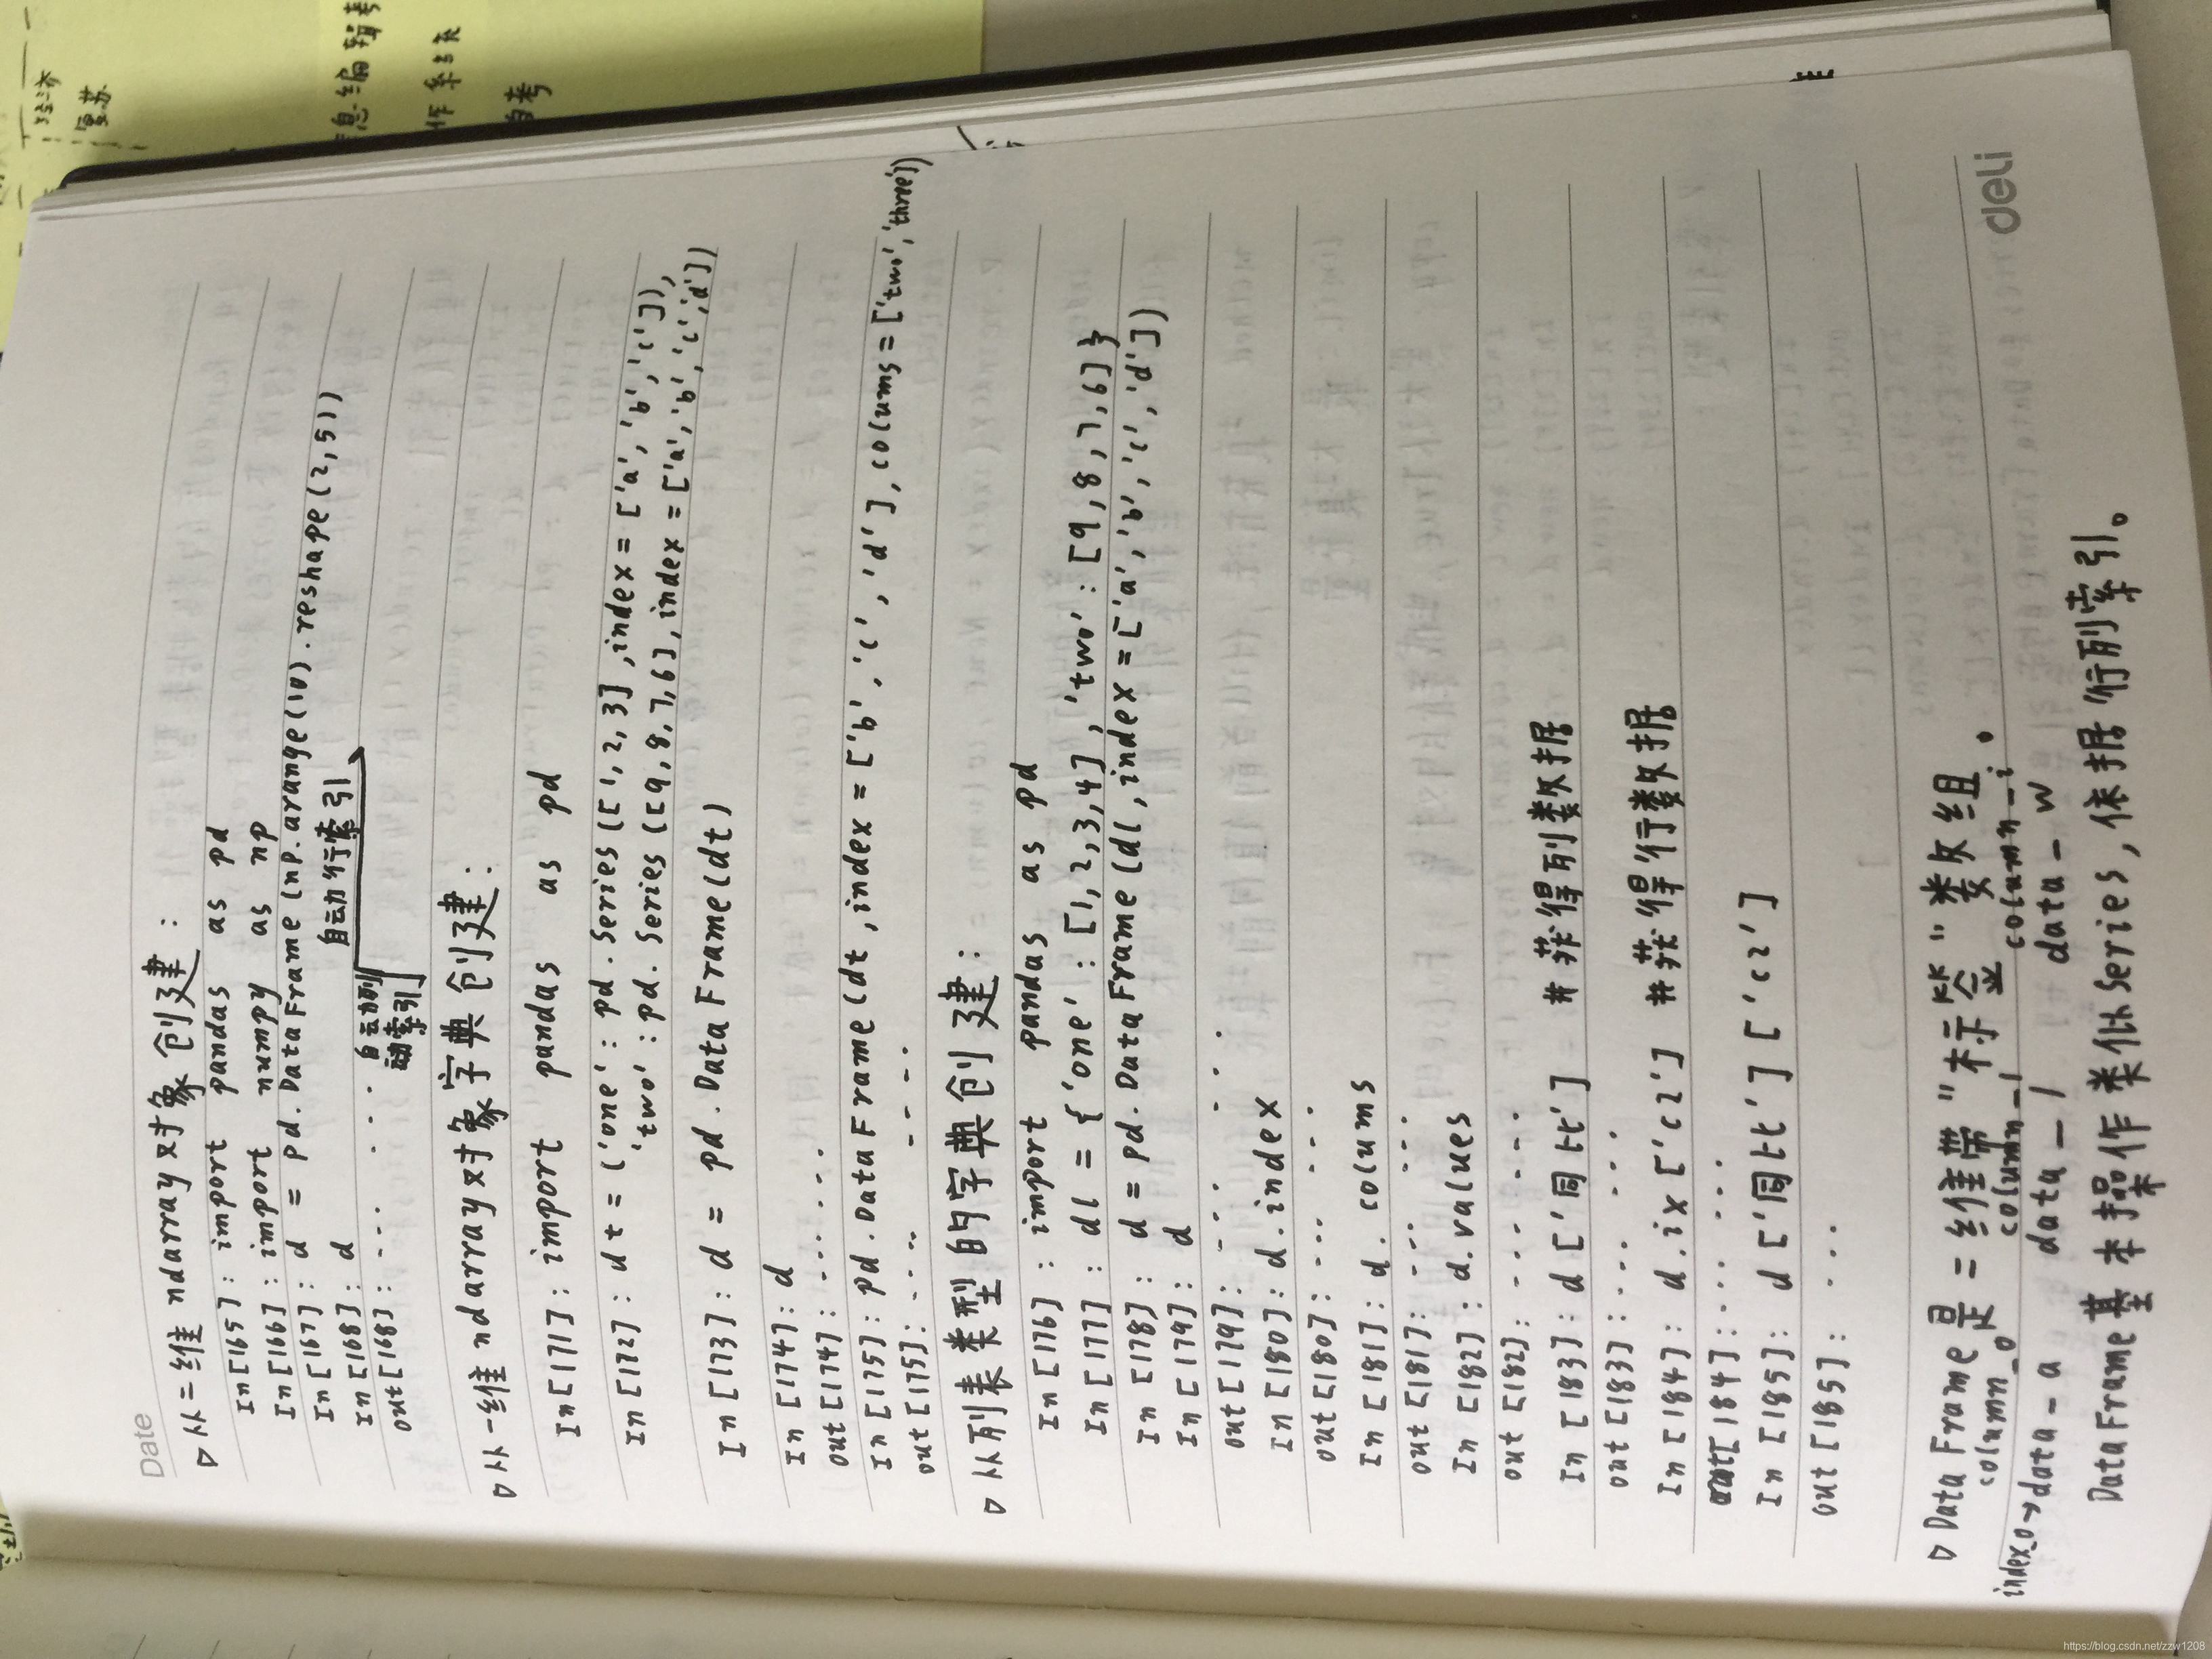 Date
▷从二维 ndarray 对象 创建:
In[165]: import pandas as pd
In[166]: import numpy as np
In[167]: d = pd.DataFrame(np.arange(10).reshape(2,5))
In[168]: d
自动行索引
out[168]: ... ...
自动列
索引
▷从一维 ndarray 对象 字典 创建:
In[171]: import pandas as pd
In[172]: dt = ('one': pd.Series([1,2,3],index=['a','b','c']),
'two': pd.Series([9,8,7,6],index=['a','b','c','d'])
In[173]: d = pd.DataFrame(dt)
In[174]: d
out[174]: ......
In[175]: pd.DataFrame(dt,index=['b','c','d'],colums=['two','three'])
out[175]: .... ....
▷从列表类型的字典创建:
In[176]: import pandas as pd
In[177]: dl = {'one':[1,2,3,4],'two':[9,8,7,6]}
In[178]: d = pd.DataFrame(dl,index=['a','b','c','d'])
In[179]: d
out[179]: ... ...
In[180]: d.index
out[180]: ... ...
In[181]: d.colums
out[181]: ... ...
In[182]: d.values
out[182]: ... ...
In[183]: d['同比'] #获得列数据
out[183]: ... ...
In[184]: d.ix['c2'] #获得行数据
out[184]: ... ...
In[185]: d['同比']['c2']
out[185]: ...
▷DataFrame是二维带"标签"数组。
column_0 column_1 column_i。
index_0→data-a data-1 data-w
DataFrame基本操作类似Series,依据行列索引。
deli
息编辑考
作系统
自考
复苏
https://blog.csdn.net/zzw1208